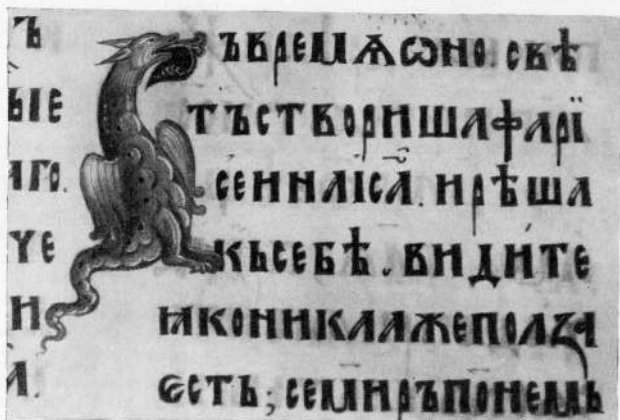 Ъ
ЫЕ
АГО.
ЧЕ
И
А.
ЪВРЕМѦѠНО. СВѢ
ТЪСТВОРИШАФАРЇ
СЕИНАІС҃А. ИРѢША
КЬСЕБѢ. ВИДИТЕ
ꙖКОНИКААЖЕПОЛꙀА
ЄСТЬ; СЕМИРЪПОНЕМЬ